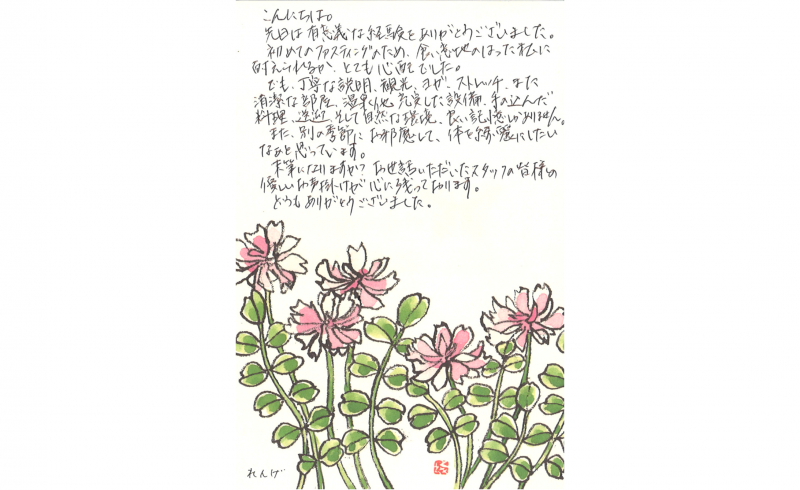 こんにちは。
先日は有意義な経験をありがとうございました。
初めてのファスティングのため、食い意地のはった私に
耐えられるか、とても心配でした。
でも、丁寧な説明、観光、ヨガ、ストレッチ、また
清潔な部屋、温泉他充実した設備、手の込んだ
料理、送迎、そして自然な環境、良い記憶しかありません。
また、別の季節にお邪魔して、体を綺麗にしたい
なぁと思っています。
末筆になりますが？お世話いただいたスタッフの皆様の
優しいお声掛けが心に残っております。
どうもありがとうございました。
れんげ